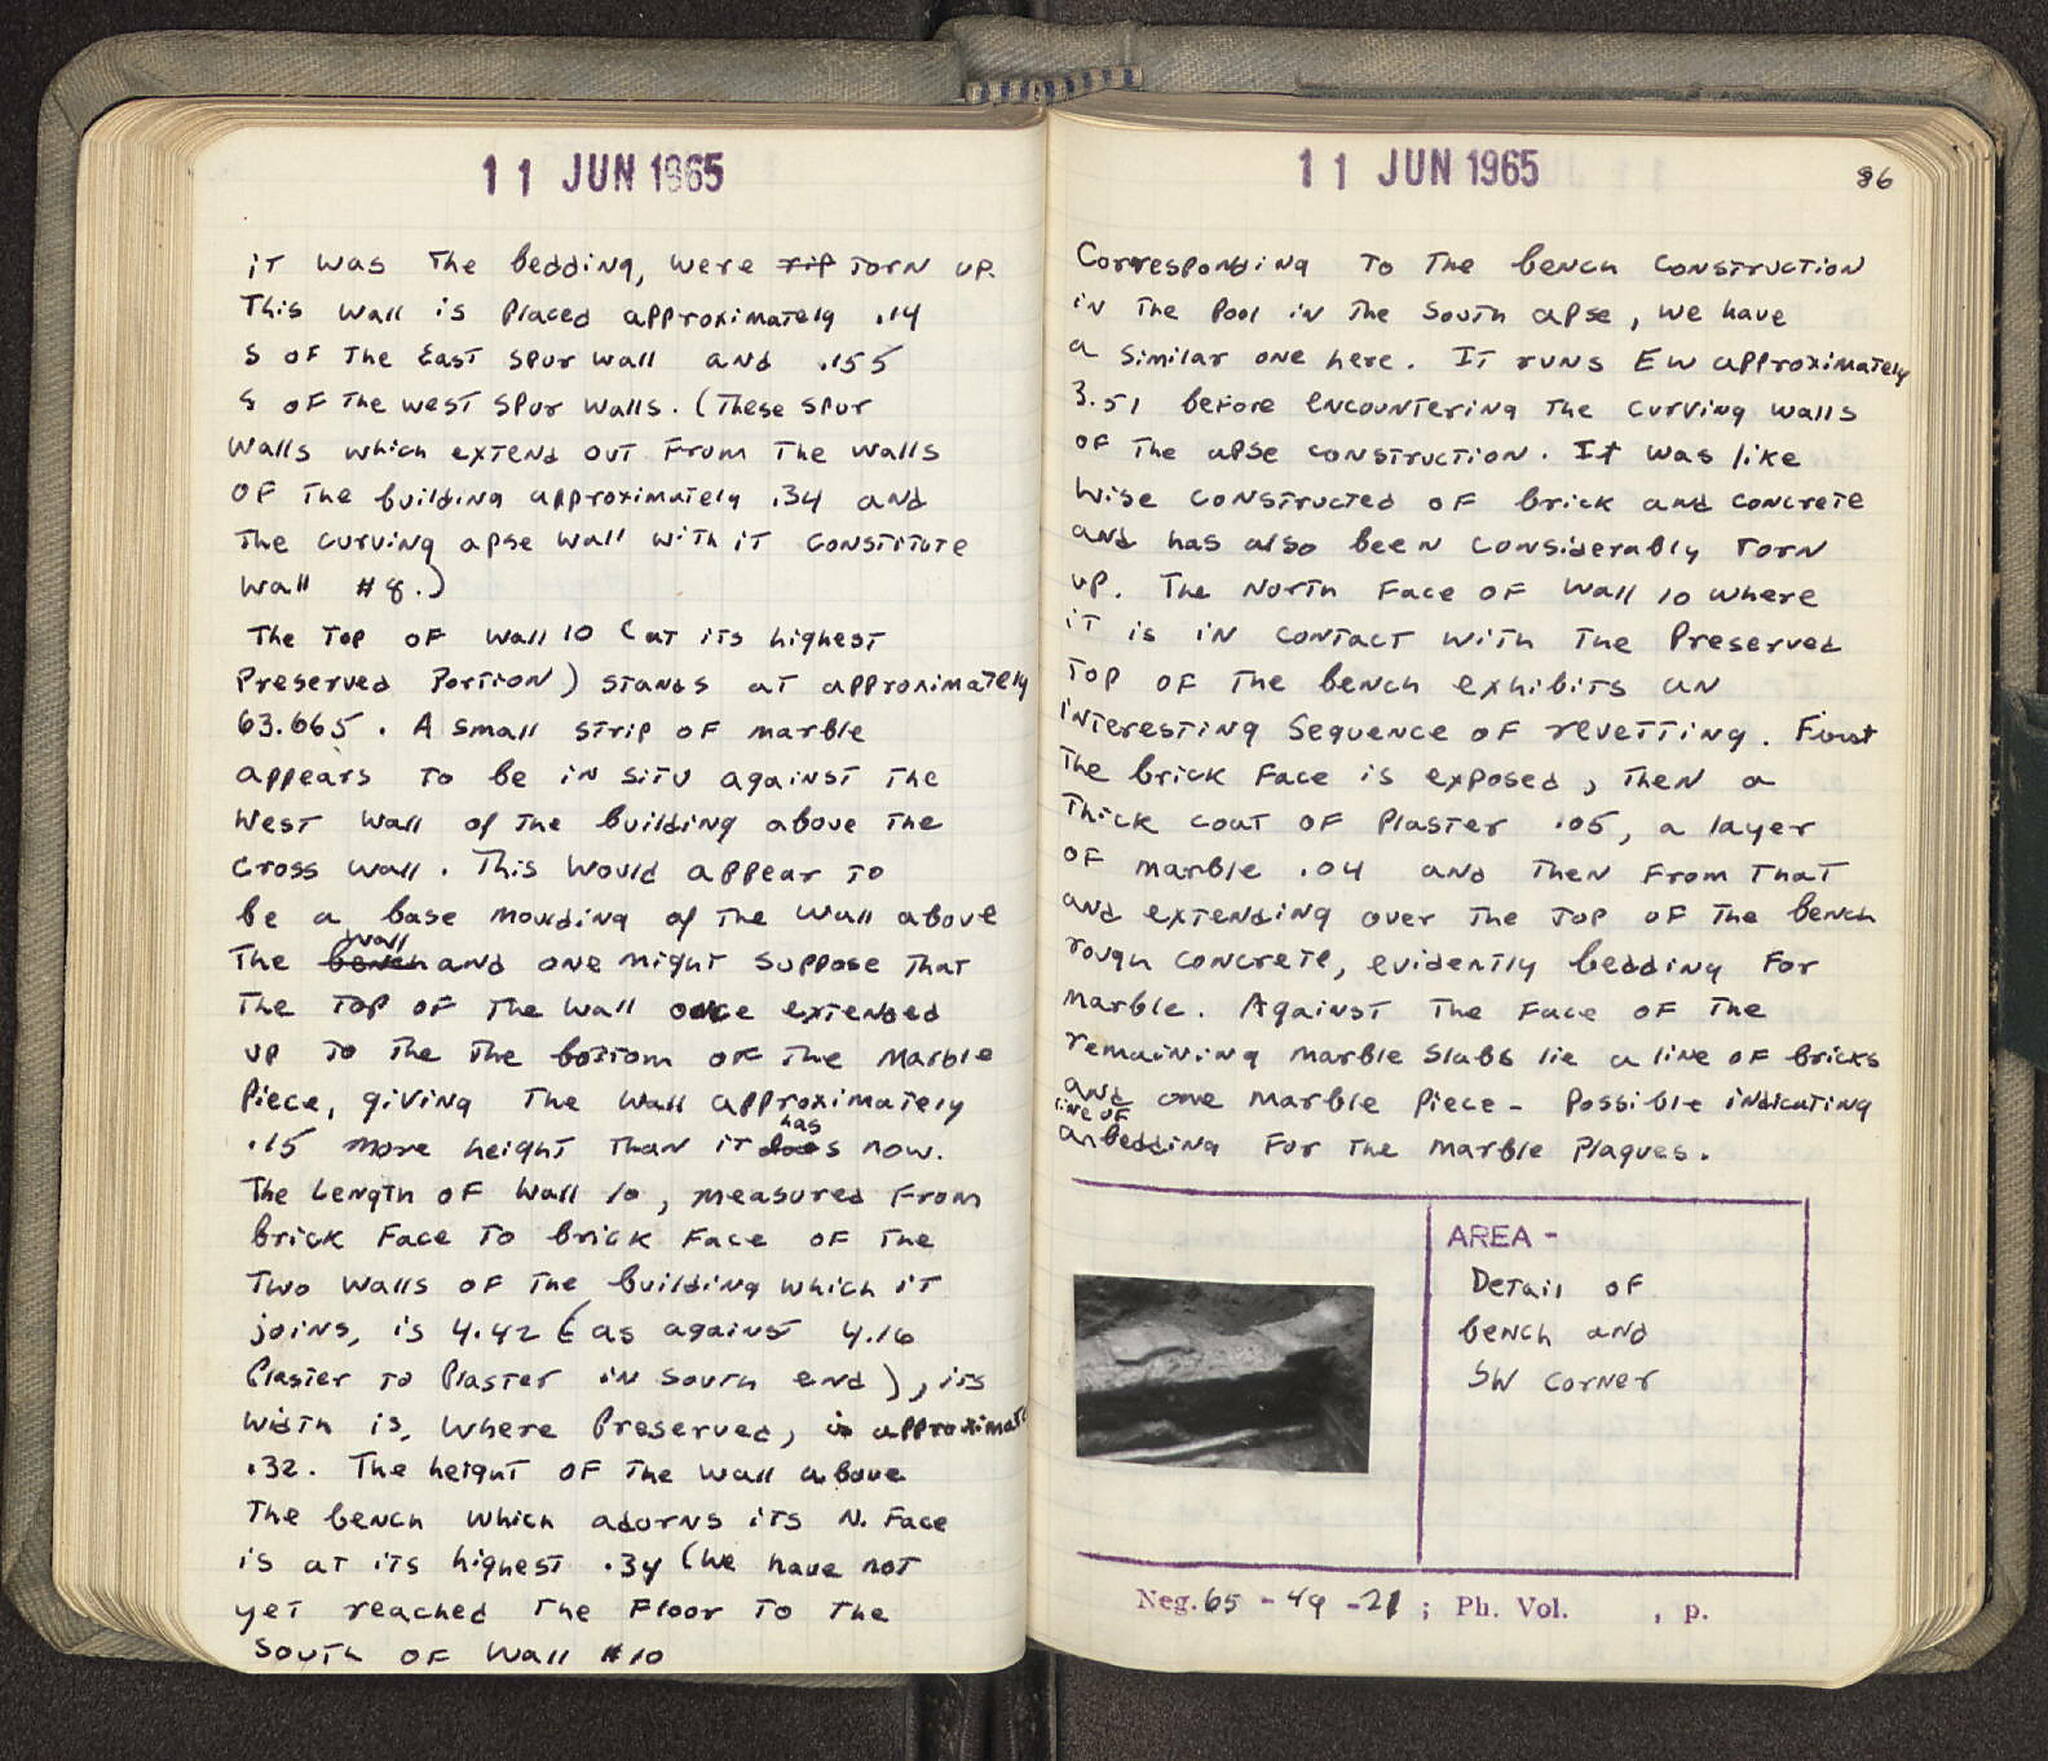 11 JUN 1965
iT was The bedding, were rip TorN up.
This wall is placed approximately .14
S of The East spur wall and .155
S of The west spur walls. (These spur
walls which extend out from The walls
of The building approximately .34 and
The curving apse wall with iT constitute
wall #8.)
The Top of wall 10 (at its highest
preserved portion) stands at approximately
63.665. A small strip of marble
appears to be in situ against the
West wall of the building above the
cross wall. This would appear to
be a base moulding of the wall above
wall
The bench and one might suppose that
The Top of The wall once extended
up to the the bottom of the marble
piece, giving The wall approximately
has
.15 more height than it does now.
The Length of wall 10, measured from
brick face to brick face of the
Two walls of the building which it
joins, is 4.42 (as against 4.16
Plaster to Plaster in south end), its
width is, where preserved, is approximate
.32. The height of the wall above
The bench which adorns its N. Face
is at its highest .34 (we have not
yet reached the floor to the
south of wall #10
11 JUN 1965
86
Corresponding to The bench construction
in The Pool in The South apse, we have
a similar one here. It runs EW approximately
3.51 before encountering the curving walls
of the apse construction. It was like
wise constructed of brick and concrete
and has also been considerably torn
up. The North Face of Wall 10 where
it is in contact with the preserved
Top of the bench exhibits an
interesting sequence of revetting. First
The brick face is exposed, then a
Thick coat of plaster .05, a layer
of marble .04 and then from that
and extending over the top of the bench
rough concrete, evidently bedding for
marble. Against the face of the
remaining marble slabs lie a line of bricks
and one marble piece - possible indicating
line of
an bedding for the marble plaques.
AREA -
Detail of
bench and
SW corner
Neg. 65 - 49 - 21 ; Ph. Vol. , p.